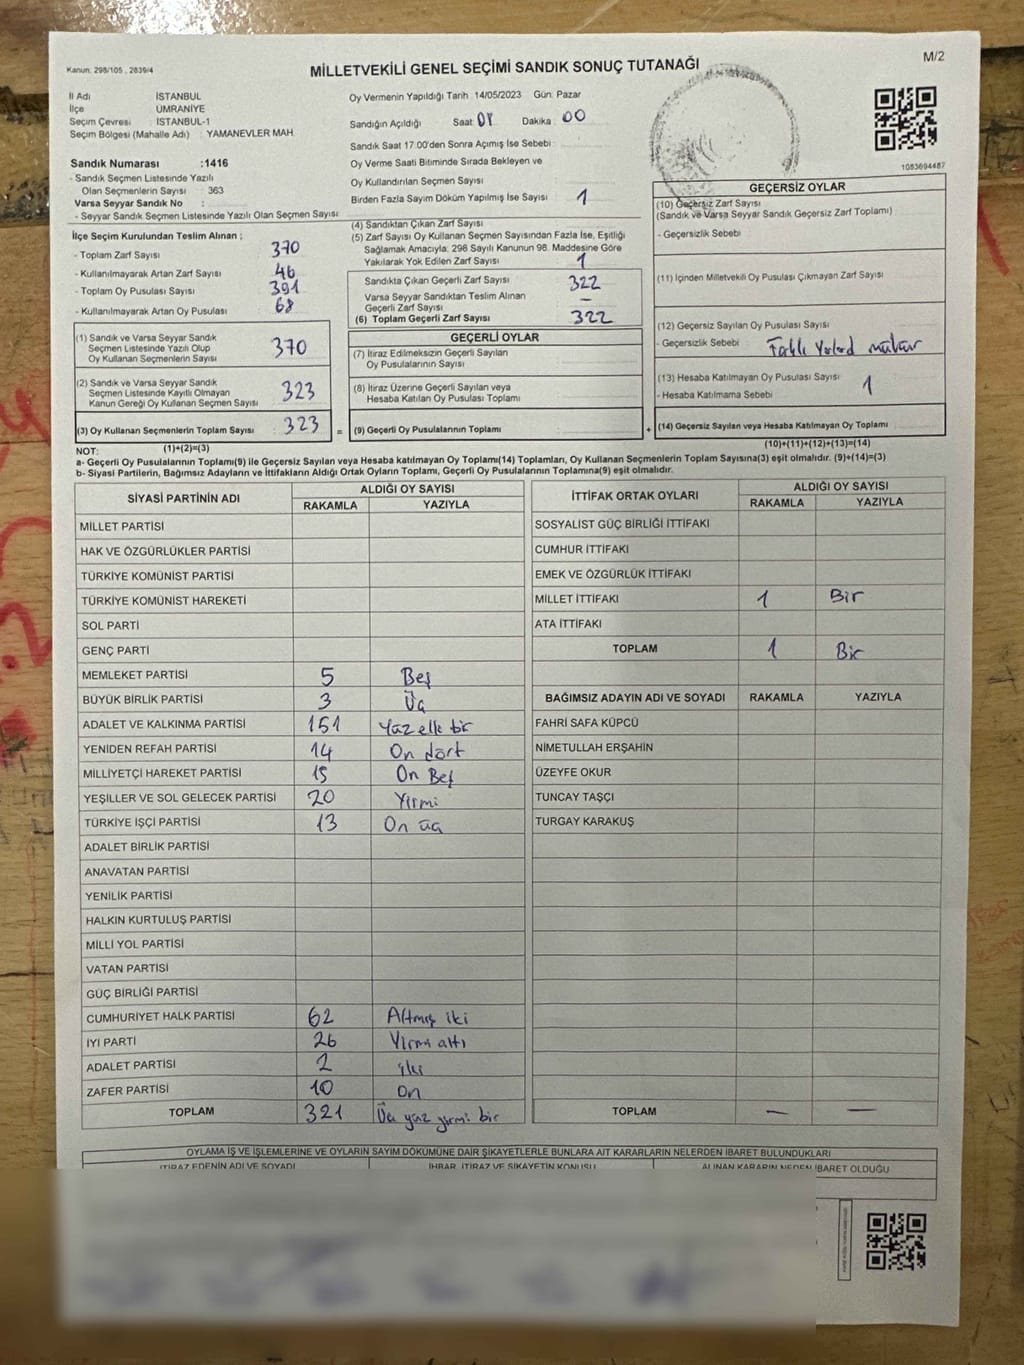 Kanun: 298/105 , 2839/4
MİLLETVEKİLİ GENEL SEÇİMİ SANDIK SONUÇ TUTANAĞI
M/2
İl Adı İSTANBUL
İlçe ÜMRANİYE
Seçim Çevresi : İSTANBUL-1
Seçim Bölgesi (Mahalle Adı) : YAMANEVLER MAH.
Sandık Numarası :1416
- Sandık Seçmen Listesinde Yazılı
Olan Seçmenlerin Sayısı : 363
Varsa Seyyar Sandık No :
- Seyyar Sandık Seçmen Listesinde Yazılı Olan Seçmen Sayısı
Oy Vermenin Yapıldığı Tarih :14/05/2023 Gün: Pazar
Sandığın Açıldığı Saat: Dakika : 00
Sandık Saat 17.00'den Sonra Açılmış İse Sebebi :
Oy Verme Saati Bitiminde Sırada Bekleyen ve
Oy Kullandırılan Seçmen Sayısı
Birden Fazla Sayım Döküm Yapılmış İse Sayısı 1
1083694487
İlçe Seçim Kurulundan Teslim Alınan :
- Toplam Zarf Sayısı 370
- Kullanılmayarak Artan Zarf Sayısı 46
- Toplam Oy Pusulası Sayısı 391
- Kullanılmayarak Artan Oy Pusulası 68
(1) Sandık ve Varsa Seyyar Sandık
Seçmen Listesinde Yazılı Olup
Oy Kullanan Seçmenlerin Sayısı 370
(2) Sandık ve Varsa Seyyar Sandık
Seçmen Listesinde Kayıtlı Olmayan
Kanun Gereği Oy Kullanan Seçmen Sayısı 323
(3) Oy Kullanan Seçmenlerin Toplam Sayısı 323 =
(4) Sandıktan Çıkan Zarf Sayısı
(5) Zarf Sayısı Oy Kullanan Seçmen Sayısından Fazla İse, Eşitliği
Sağlamak Amacıyla; 298 Sayılı Kanunun 98. Maddesine Göre
Yakılarak Yok Edilen Zarf Sayısı 1
Sandıkta Çıkan Geçerli Zarf Sayısı 322
Varsa Seyyar Sandıktan Teslim Alınan
Geçerli Zarf Sayısı —
(6) Toplam Geçerli Zarf Sayısı 322
GEÇERLİ OYLAR
(7) İtiraz Edilmeksizin Geçerli Sayılan
Oy Pusulalarının Sayısı
(8) İtiraz Üzerine Geçerli Sayılan veya
Hesaba Katılan Oy Pusulası Toplamı
(9) Geçerli Oy Pusulalarının Toplamı +
GEÇERSİZ OYLAR
(10) Geçersiz Zarf Sayısı
(Sandık ve Varsa Seyyar Sandık Geçersiz Zarf Toplamı)
- Geçersizlik Sebebi
(11) İçinden Milletvekili Oy Pusulası Çıkmayan Zarf Sayısı
(12) Geçersiz Sayılan Oy Pusulası Sayısı
- Geçersizlik Sebebi Farklı mühür
(13) Hesaba Katılmayan Oy Pusulası Sayısı 1
- Hesaba Katılmama Sebebi
(14) Geçersiz Sayılan veya Hesaba Katılmayan Oy Toplamı
NOT: (1)+(2)=(3) (10)+(11)+(12)+(13)=(14)
a- Geçerli Oy Pusulalarının Toplamı(9) ile Geçersiz Sayılan veya Hesaba katılmayan Oy Toplamı(14) Toplamları, Oy Kullanan Seçmenlerin Toplam Sayısına(3) eşit olmalıdır. (9)+(14)=(3)
b- Siyasi Partilerin, Bağımsız Adayların ve İttifakların Aldığı Ortak Oyların Toplamı, Geçerli Oy Pusulalarının Toplamına(9) eşit olmalıdır.
SİYASİ PARTİNİN ADI ALDIĞI OY SAYISI
RAKAMLA YAZIYLA
MİLLET PARTİSİ
HAK VE ÖZGÜRLÜKLER PARTİSİ
TÜRKİYE KOMÜNİST PARTİSİ
TÜRKİYE KOMÜNİST HAREKETİ
SOL PARTİ
GENÇ PARTİ
MEMLEKET PARTİSİ 5 Beş
BÜYÜK BİRLİK PARTİSİ 3 Üç
ADALET VE KALKINMA PARTİSİ 151 Yüz elli bir
YENİDEN REFAH PARTİSİ 14 On dört
MİLLİYETÇİ HAREKET PARTİSİ 15 On Beş
YEŞİLLER VE SOL GELECEK PARTİSİ 20 Yirmi
TÜRKİYE İŞÇİ PARTİSİ 13 On üç
ADALET BİRLİK PARTİSİ
ANAVATAN PARTİSİ
YENİLİK PARTİSİ
HALKIN KURTULUŞ PARTİSİ
MİLLİ YOL PARTİSİ
VATAN PARTİSİ
GÜÇ BİRLİĞİ PARTİSİ
CUMHURİYET HALK PARTİSİ 62 Altmış iki
İYİ PARTİ 26 Yirmi altı
ADALET PARTİSİ 2 iki
ZAFER PARTİSİ 10 On
TOPLAM 321 Üç yüz yirmi bir
İTTİFAK ORTAK OYLARI ALDIĞI OY SAYISI
RAKAMLA YAZIYLA
SOSYALİST GÜÇ BİRLİĞİ İTTİFAKI
CUMHUR İTTİFAKI
EMEK VE ÖZGÜRLÜK İTTİFAKI
MİLLET İTTİFAKI 1 Bir
ATA İTTİFAKI
TOPLAM 1 Bir
BAĞIMSIZ ADAYIN ADI VE SOYADI RAKAMLA YAZIYLA
FAHRİ SAFA KÜPCÜ
NİMETULLAH ERŞAHİN
ÜZEYFE OKUR
TUNCAY TAŞÇI
TURGAY KARAKUŞ
TOPLAM — —
OYLAMA İŞ VE İŞLEMLERİNE VE OYLARIN SAYIM DÖKÜMÜNE DAİR ŞİKAYETLERLE BUNLARA AİT KARARLARIN NELERDEN İBARET BULUNDUKLARI
İTİRAZ EDENİN ADI VE SOYADI İHBAR, İTİRAZ VE ŞİKAYETİN KONUSU ALINAN KARARIN NEDEN İBARET OLDUĞU